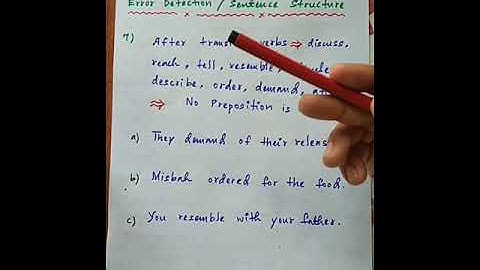 Error Detection / Sentence Structure
7) After verbs ⇒ discuss,
reach, tell, resemble,
describe, order, demand,
⇒ No Preposition is
a) They demand of their
b) Misbah ordered for the food.
c) You resemble with your father.